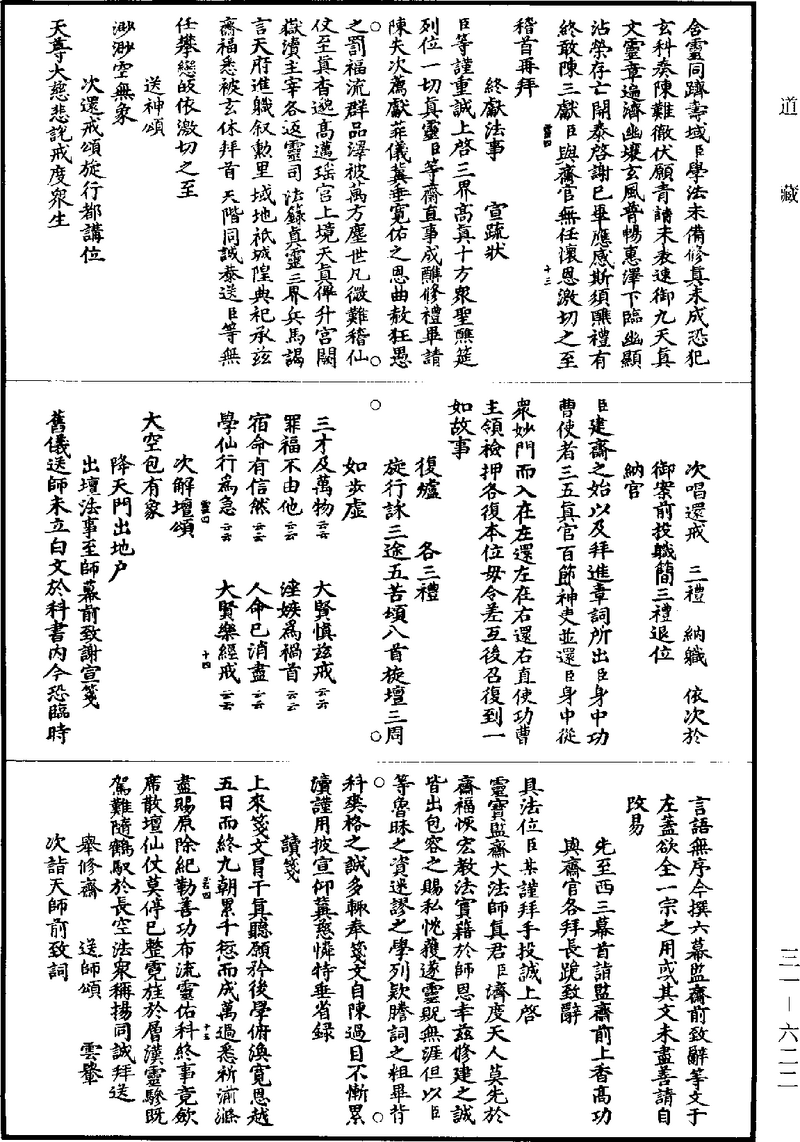 道藏
含靈同躋壽域臣學法未備修真未成恐犯
玄科奏陳難徹伏願青詞未表速御九天真
文靈章遍濟幽壤玄風普暢惠澤下臨幽顯
沾榮存亡開泰啓謝已畢應感斯須醮禮有
終敢陳三獻臣與齋官無任懷恩激切之至
稽首再拜
終獻法事 宣疏狀
臣等謹重誠上啓三界高真十方衆聖醮筵
列位一切真靈臣等齋直事成醮修禮畢請
陳夫次薦獻菲儀冀垂寬佑之恩曲赦狂愚
之罰福流群品澤被萬方塵世凡微難稽仙
仗至真杳邈高邁瑤宮上境天真俾升宮闕
嶽瀆主宰各返靈司法籙真靈三界兵馬謁
言天府進職叙勳里域地祇城隍典祀承茲
齋福悉被玄休拜首天階同誠恭送臣等無
任攀戀皈依激切之至
送神頌
渺渺空無象
次還戒頌旋行都講位
天尊大慈悲說戒度衆生
次唱還戒 三禮 納職 依次於
御案前投職簡三禮退位
納官
臣建齋之始以及拜進章詞所出臣身中功
曹使者三五真官百節神吏並還臣身中從
衆妙門而入在左還左在右還右直使功曹
主領檢押各復本位毋令差互後召復到一
如故事
復爐 各三禮
旋行詠三途五苦頌八首旋壇三周
如步虛
三才及萬物云云 大賢慎茲戒云云
罪福不由他云云 淫嫉爲禍首云云
宿命有信然云云 人命已消盡云云
學仙行爲急云云 大賢樂經戒云云
次解壇頌
大空包有象
降天門出地户
出壇法事至師幕前致謝宣箋
舊儀送師未立白文於科書内今恐臨時
言語無序今撰六幕監齋前致辭等文于
左蓋欲全一宗之用或其文未盡善請自
改易
先至西三幕首請監齋前上香高功
與齋官各拜長跪致辭
具法位臣某謹拜手投誠上啓
靈寶監齋大法師真君臣濟度天人莫先於
齋福恢宏教法實藉於師恩幸茲修建之誠
皆出包容之賜私忱獲遂靈貺無涯但以臣
等魯昧之資迷謬之學列欵謄詞之粗畢背
科爽格之誠多輒奉箋文自陳過目不慚累
瀆謹用披宣仰冀慈憐特垂省録
讀箋
上來箋文冒干真聽願矜後學俯渙寬恩越
五日而終九朝累千愆而成萬過悉祈湔滌
盡賜原除紀勤善功布流靈佑科終事竟歛
席散壇仙仗莫停已整霓旌於層漢靈驂既
駕難隨鶴馭於長空法衆稱揚同誠拜送
舉修齋 送師頌 雲轝
次詣天師前致詞
三一－六二二